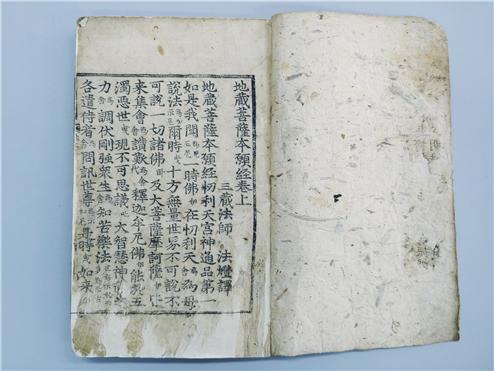 地藏菩薩本願經卷上
三藏法師 法燈譯
地藏菩薩本願經忉利天宮神通品第一
如是我聞 一時佛 在忉利天 為母
說法 爾時 十方無量世界不可說不
可說一切諸佛 及大菩薩摩訶薩
來集會 讚歎 釋迦牟尼佛 能於五
濁惡世 現不可思議 大智慧神
力 調伏剛強衆生 知苦樂法
各遣侍者 問訊世尊 是時 如來